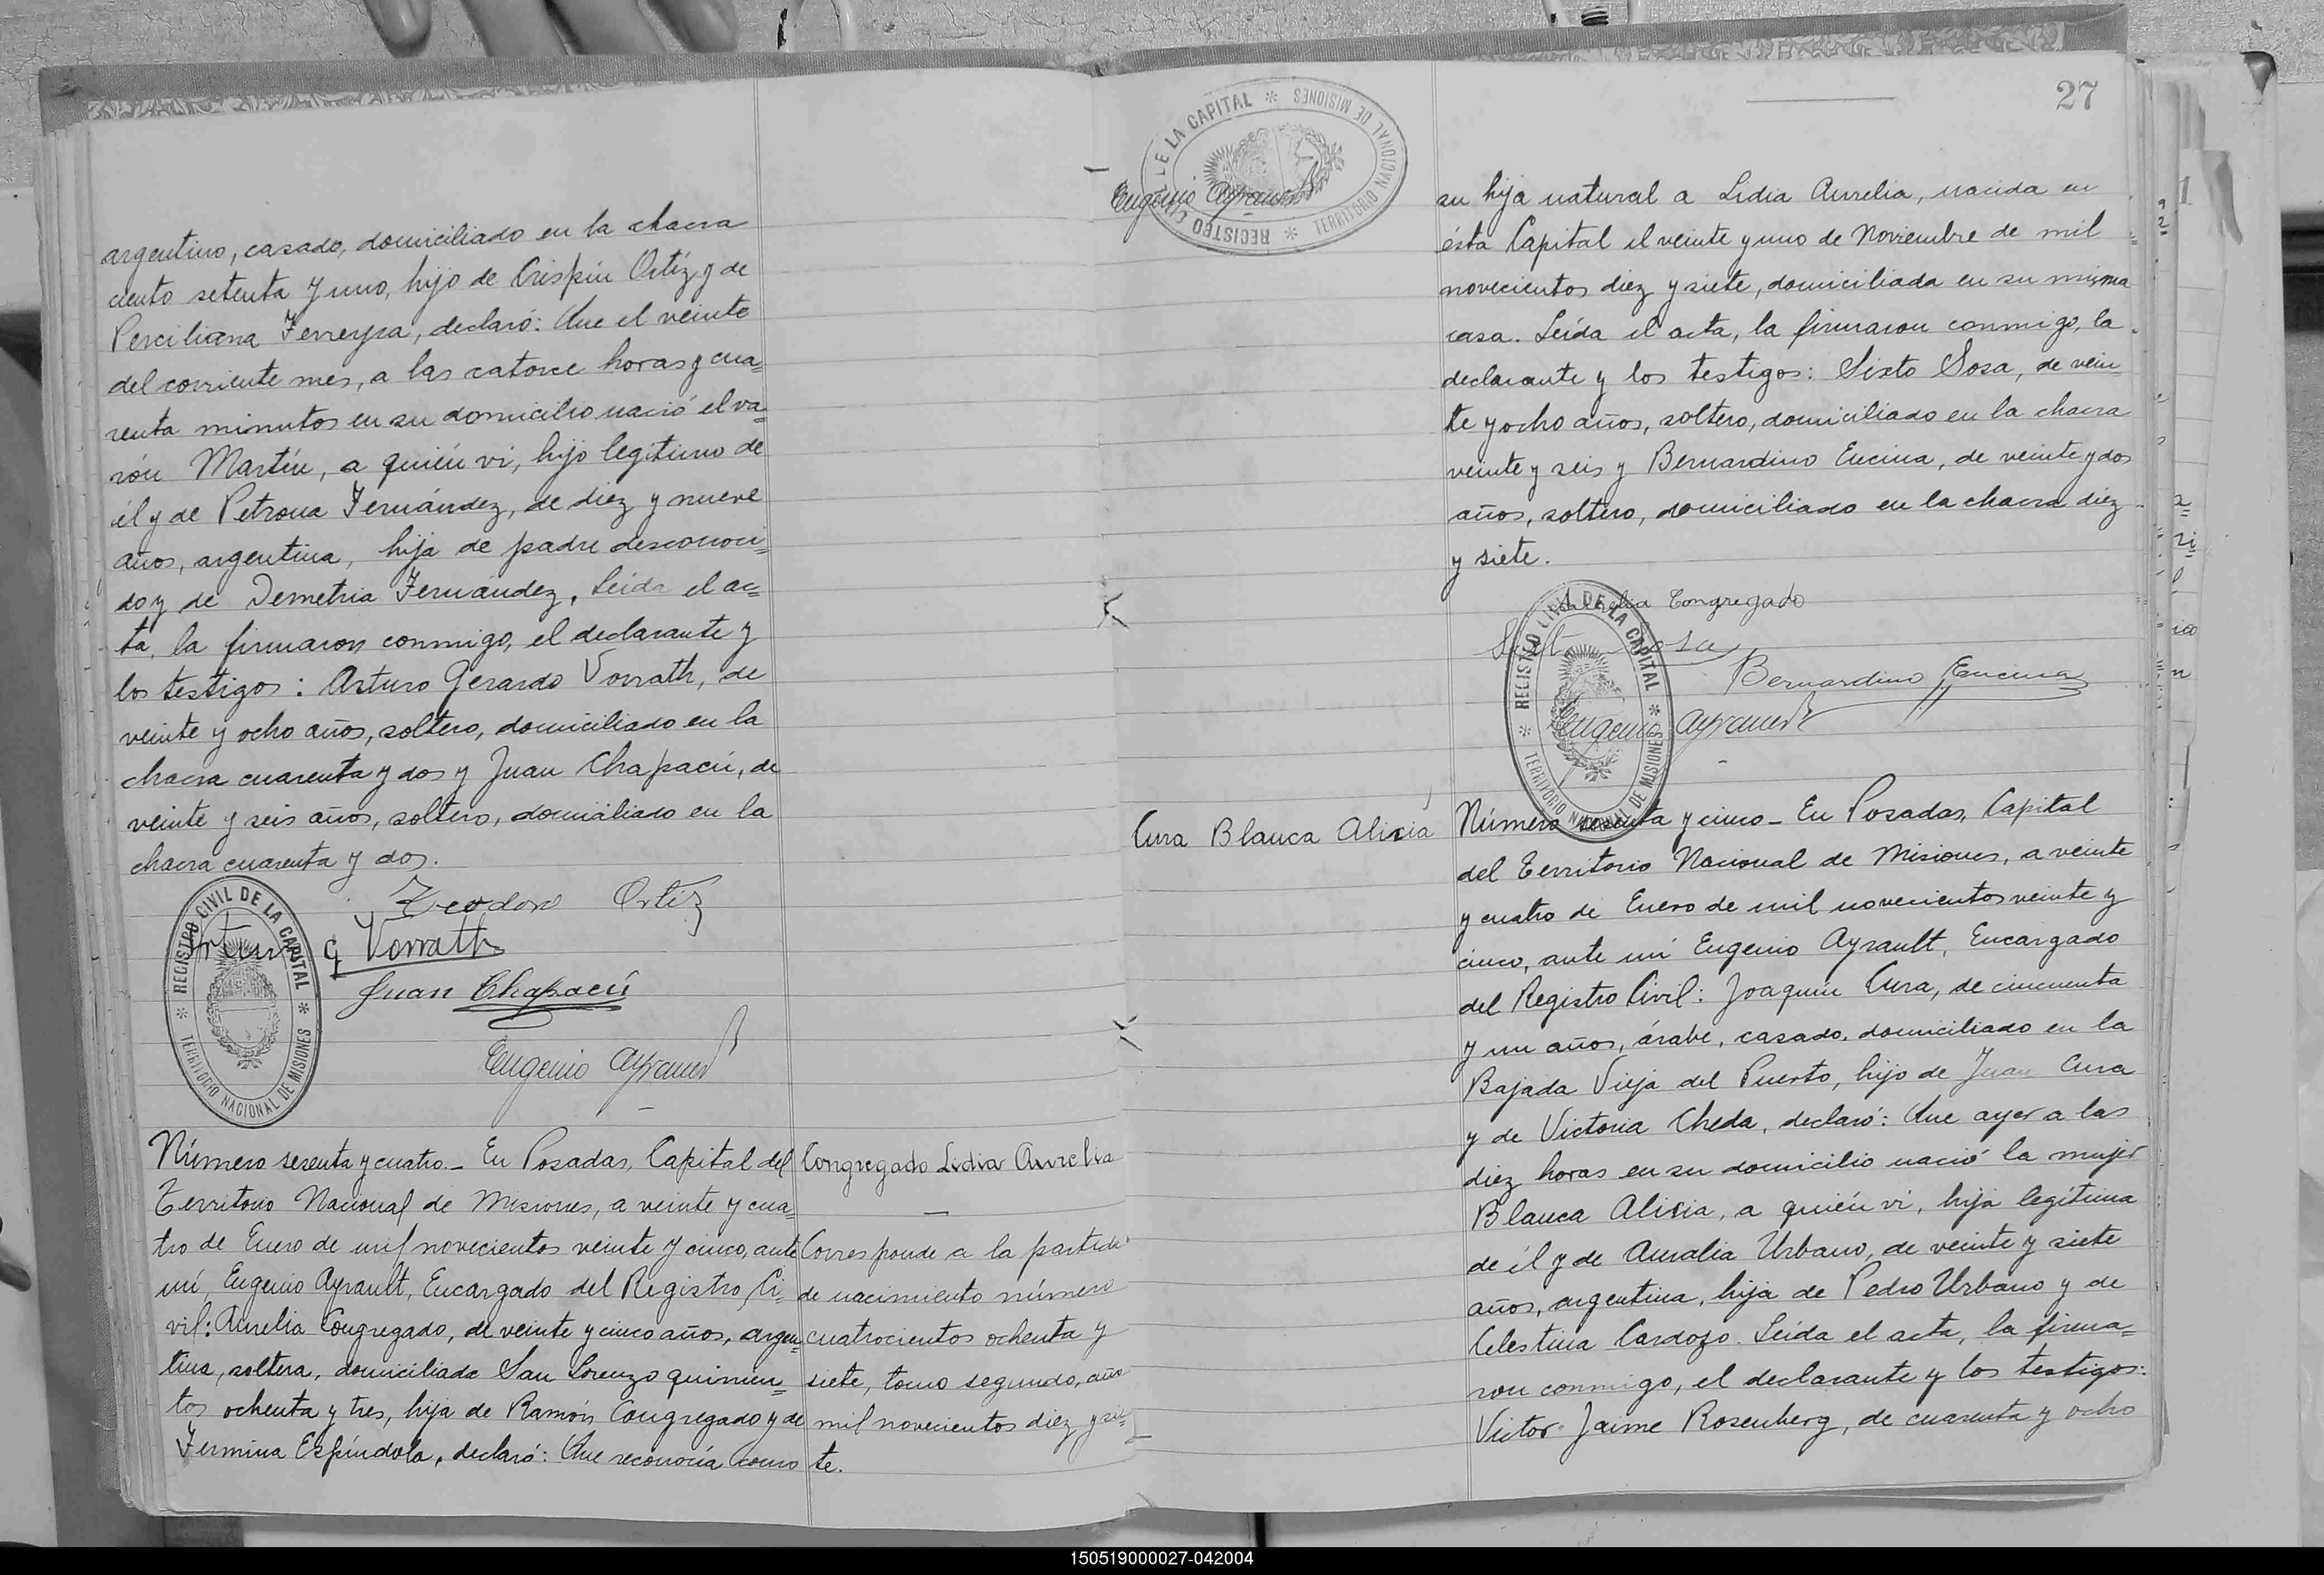 argentino, casado, domiciliado en la chacra
ciento setenta y uno, hijo de Crispín Ortíz y de
Perciliana Ferreyra, declaró: Que el veinte
del corriente mes, a las catorce horas y cua=
renta minutos en su domicilio nació el va=
rón Martín, a quién vi, hijo legítimo de
él y de Petrona Fernández, de diez y nueve
años, argentina, hija de padre desconoci=
do y de Demetria Fernández. Leída el ac=
ta, la firmaron conmigo, el declarante y
los testigos: Arturo Gerardo Vorrath, de
veinte y ocho años, soltero, domiciliado en la
chacra cuarenta y dos y Juan Chapacú, de
veinte y seis años, soltero, domiciliado en la
chacra cuarenta y dos.
Teodoro Ortiz
Arturo G Vorrath
Juan Chapacú
Eugenio Ayrault
REGISTRO CIVIL DE LA CAPITAL * TERRITORIO NACIONAL DE MISIONES *
Número sesenta y cuatro_ En Posadas, Capital del
Territorio Nacional de Misiones, a veinte y cua=
tro de Enero de mil novecientos veinte y cinco, ante
mí, Eugenio Ayrault, Encargado del Registro Ci=
vil: Aurelia Congregado, de veinte y cinco años, argen=
tina, soltera, domiciliada San Lorenzo quinien=
tos ochenta y tres, hija de Ramón Congregado y de
Fermina Espíndola, declaró: Que reconocía como
Congregado Lidia Aurelia
Corresponde a la partida
de nacimiento número
cuatrocientos ochenta y
siete, tomo segundo, año
mil novecientos diez y sie=
te.
27
REGISTRO CIVIL DE LA CAPITAL * TERRITORIO NACIONAL DE MISIONES *
Eugenio Ayrault
su hija natural a Lidia Aurelia, nacida en
ésta Capital el veinte y uno de Noviembre de mil
novecientos diez y siete, domiciliada en su misma
casa. Leída el acta, la firmaron conmigo, la
declarante y los testigos: Sixto Sosa, de vein=
te y ocho años, soltero, domiciliado en la chacra
veinte y seis y Bernardino Encina, de veinte y dos
años, soltero, domiciliado en la chacra diez
y siete.
Aurelia Congregado
Sixto Sosa
Bernardino Encina
Eugenio Ayrault
REGISTRO CIVIL DE LA CAPITAL * TERRITORIO NACIONAL DE MISIONES *
Cura Blanca Alicia
Número sesenta y cinco_ En Posadas, Capital
del Territorio Nacional de Misiones, a veinte
y cuatro de Enero de mil novecientos veinte y
cinco, ante mí Eugenio Ayrault, Encargado
del Registro Civil: Joaquín Cura, de cincuenta
y un años, árabe, casado, domiciliado en la
Bajada Vieja del Puerto, hijo de Juan Cura
y de Victoria Cheda, declaró: Que ayer a las
diez horas en su domicilio nació la mujer
Blanca Alicia, a quién vi, hija legítima
de él y de Auralia Urbano, de veinte y siete
años, argentina, hija de Pedro Urbano y de
Celestina Cardozo. Leída el acta, la firma=
ron conmigo, el declarante y los testigos:
Victor Jaime Rosenberg, de cuarenta y ocho
150519000027-042004